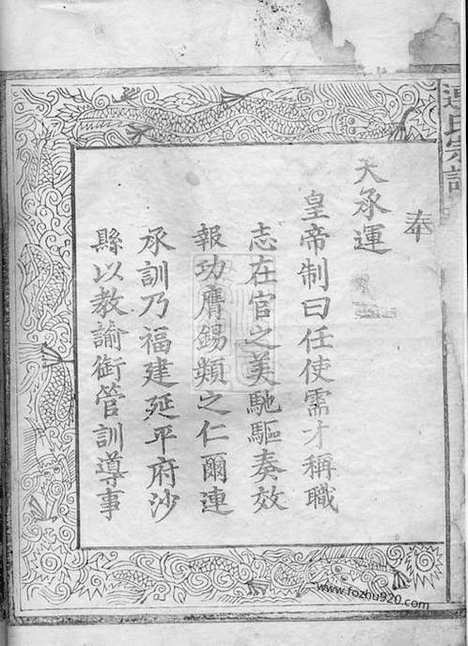 連氏宗譜
奉
天承運
皇帝制曰任使需才稱職
志在官之美馳驅奏效
報功膺錫類之仁爾連
承訓乃福建延平府沙
縣以教諭銜管訓導事
www.fozhu920.com